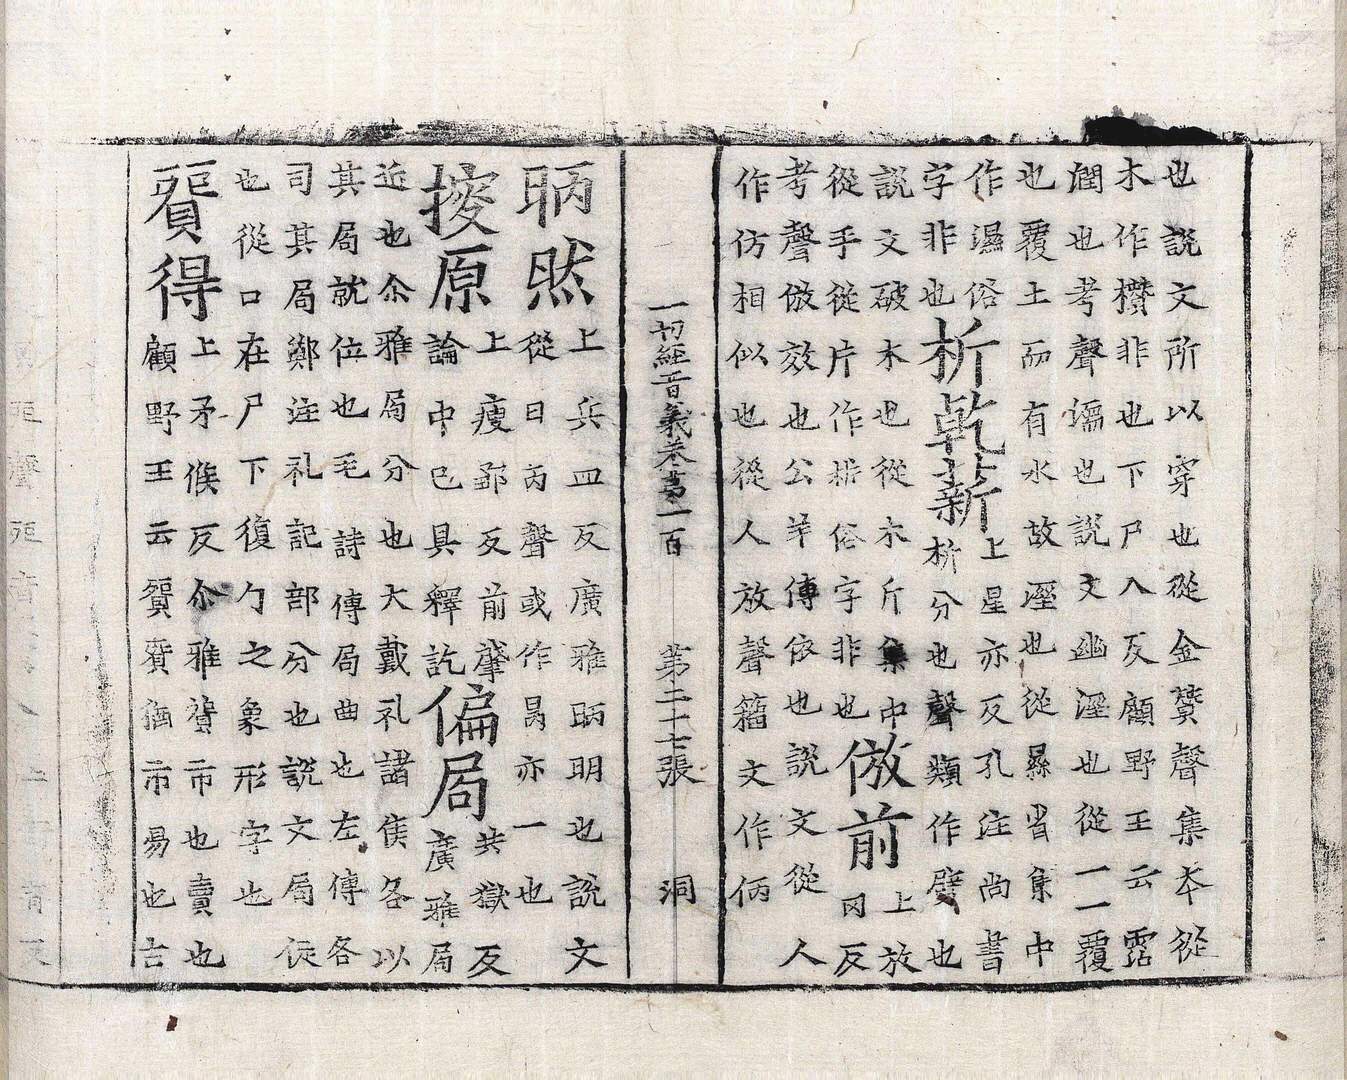 也說文所以穿也從金贊聲集本從
木作欑非也下尸入反顧野王云霑
潤也考聲濡也說文幽溼也從一一覆
也覆土而有水故溼也從㬎省集中
作濕俗
字非也
析乾薪
上星亦反孔注尚書
析分也聲類作廦也
說文破木也從木斤集中
從手從片作㭊俗字非也
倣前
上放
冈反
考聲倣效也公羊傳依也說文從人
作仿相似也從人放聲籀文作㑂
一切經音義卷第一百 第二十七張 洞
昞然
上兵皿反廣雅昞明也說文
從日丙聲或作昺亦一也
搜原
上瘦鄒反前肇
論中已具釋訖
偏局
共獄反
廣雅局
近也尒雅局分也大戴礼諸侯各以
其局就位也毛詩傳局曲也左傳各
司其局鄭注礼記部分也說文局促
也從口在尸下復勹之象形字也
貿得
上矛候反尒雅貿市也賣也
顧野王云貿賣猶市易也古